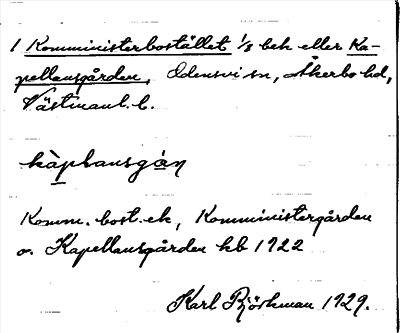 1 Komministerbostället 1/8 bek eller Ka-
pellansgården, Odensvi sn, Åkerbo hd,
Västmanl. l.
kàplansgán
Komm. bost. ek, Komministergården
o. Kapellansgården kb 1922
Karl Björkman 1929.